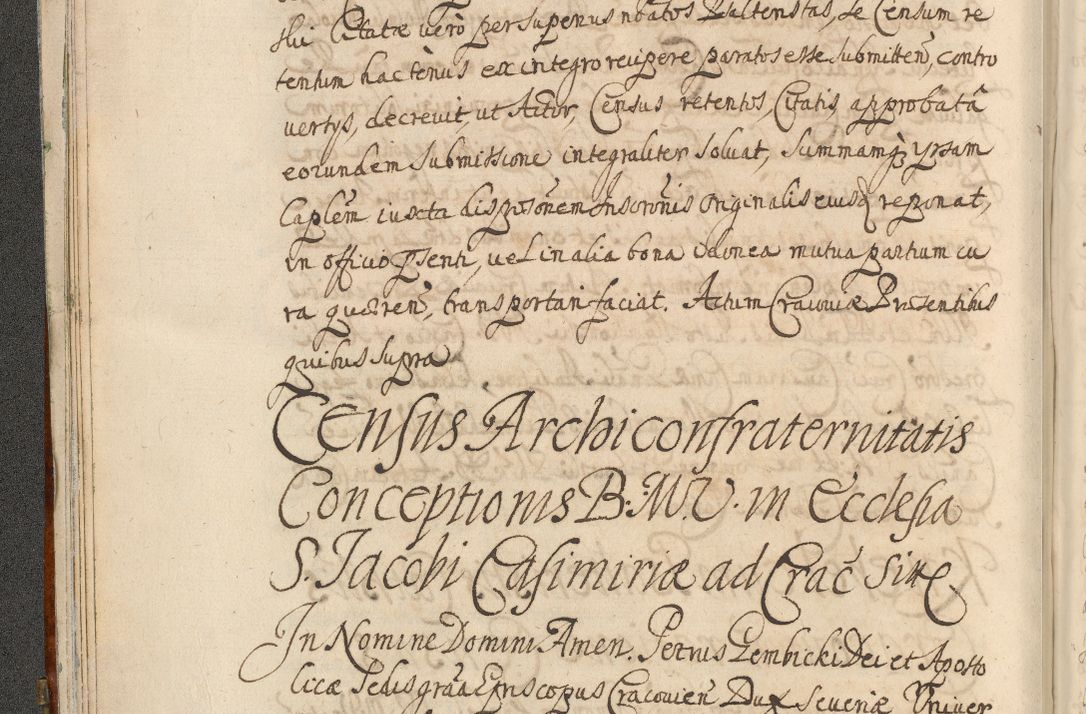 stui Citatæ verò per supenus nōatos Vultenstas, se Censum re
tentum hactenus ex integro recipere paratos esse submitteñ, contro
vertys, decrevit, ut Actor, Census retentos, Citatis, approbatâ
eorundem submissione integraliter solvat, Summamq̨ ypsam
Caplēm iuxta disposōnem Inscroñis Originalis eiusd reponat,
in officio p̄senti, vel in alia bona idonea mutua partium cu
ra quæreñ, transportari faciat. Actum Cracoviæ Præsentibus
quibus supra
Census Archiconfraternitatis
Conceptionis B.M.V. in Ecclesia
S. Jacobi Casimiriæ ad Crac̄ Sittæ
In Nomine Domini Amen. Petrus Gembicki Dei et Aposto
licæ Sedis grā̃a Episcopus Cracovieñ Dux Severiæ Univer